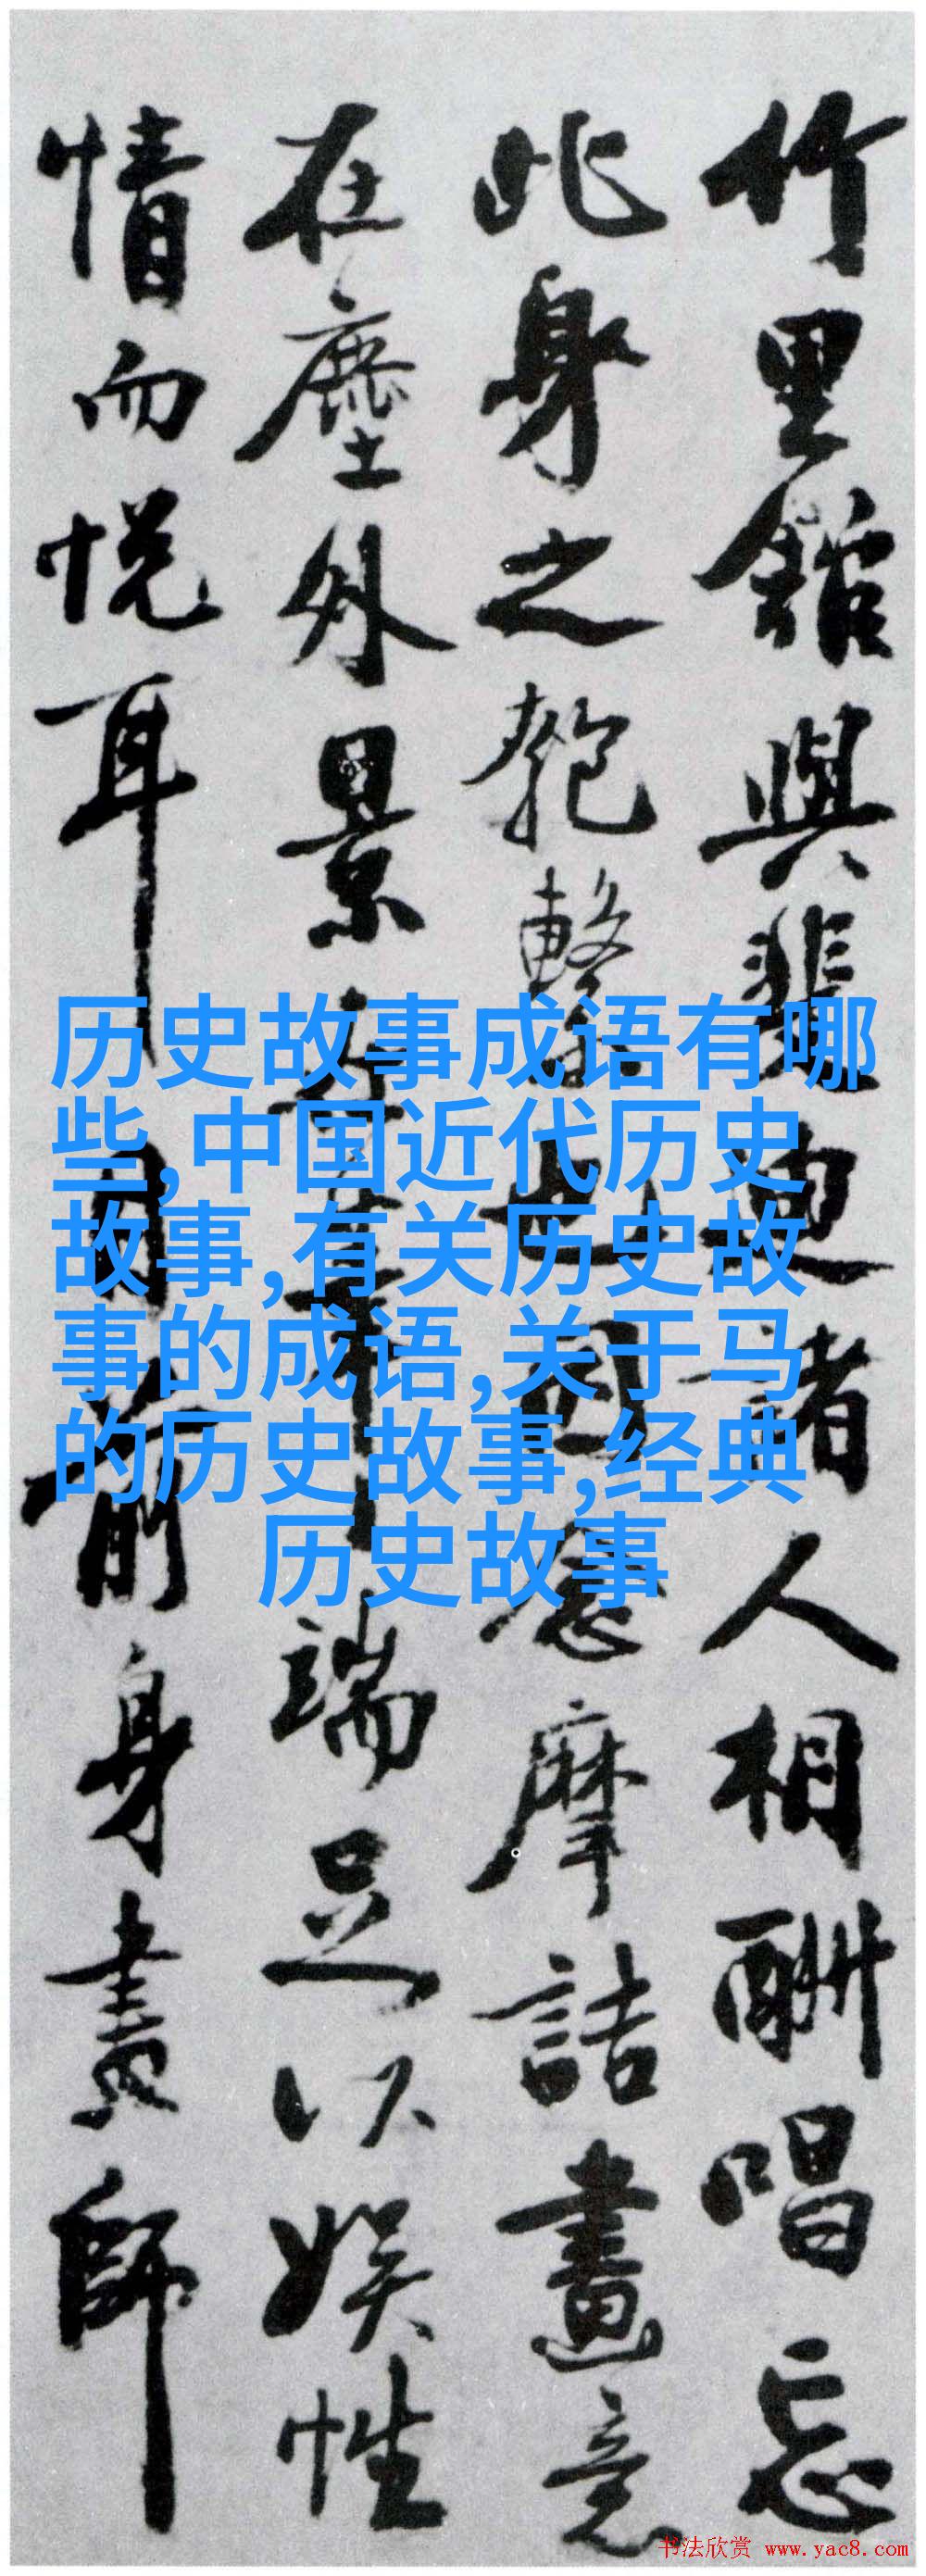 竹里館與裴迪諸人相酬唱忘
此身之匏繫也因念摩詰畫意
在塵外景筆端足以娛性
情而悅耳目前身畫師
历史故事成语有哪
些,中国近代历史
故事,有关历史故
事的成语,关于马
的历史故事,经典
历史故事
书法欣赏 www.yac8.com